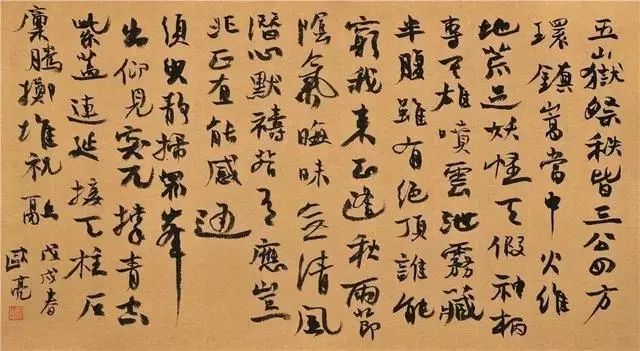 五嶽祭秩皆三公四方
環鎮嵩當中火維
地荒足妖怪天假神柄
專其雄噴雲泄霧藏
半腹雖有絕頂誰能
窮我來正逢秋雨節
陰氣晦昧無清風
潛心默禱若有應豈
非正直能感通
須臾靜掃眾峰
出仰見突兀撐青空
紫蓋連延接天柱石
廩騰擲堆祝融 戊戌春
歐亮